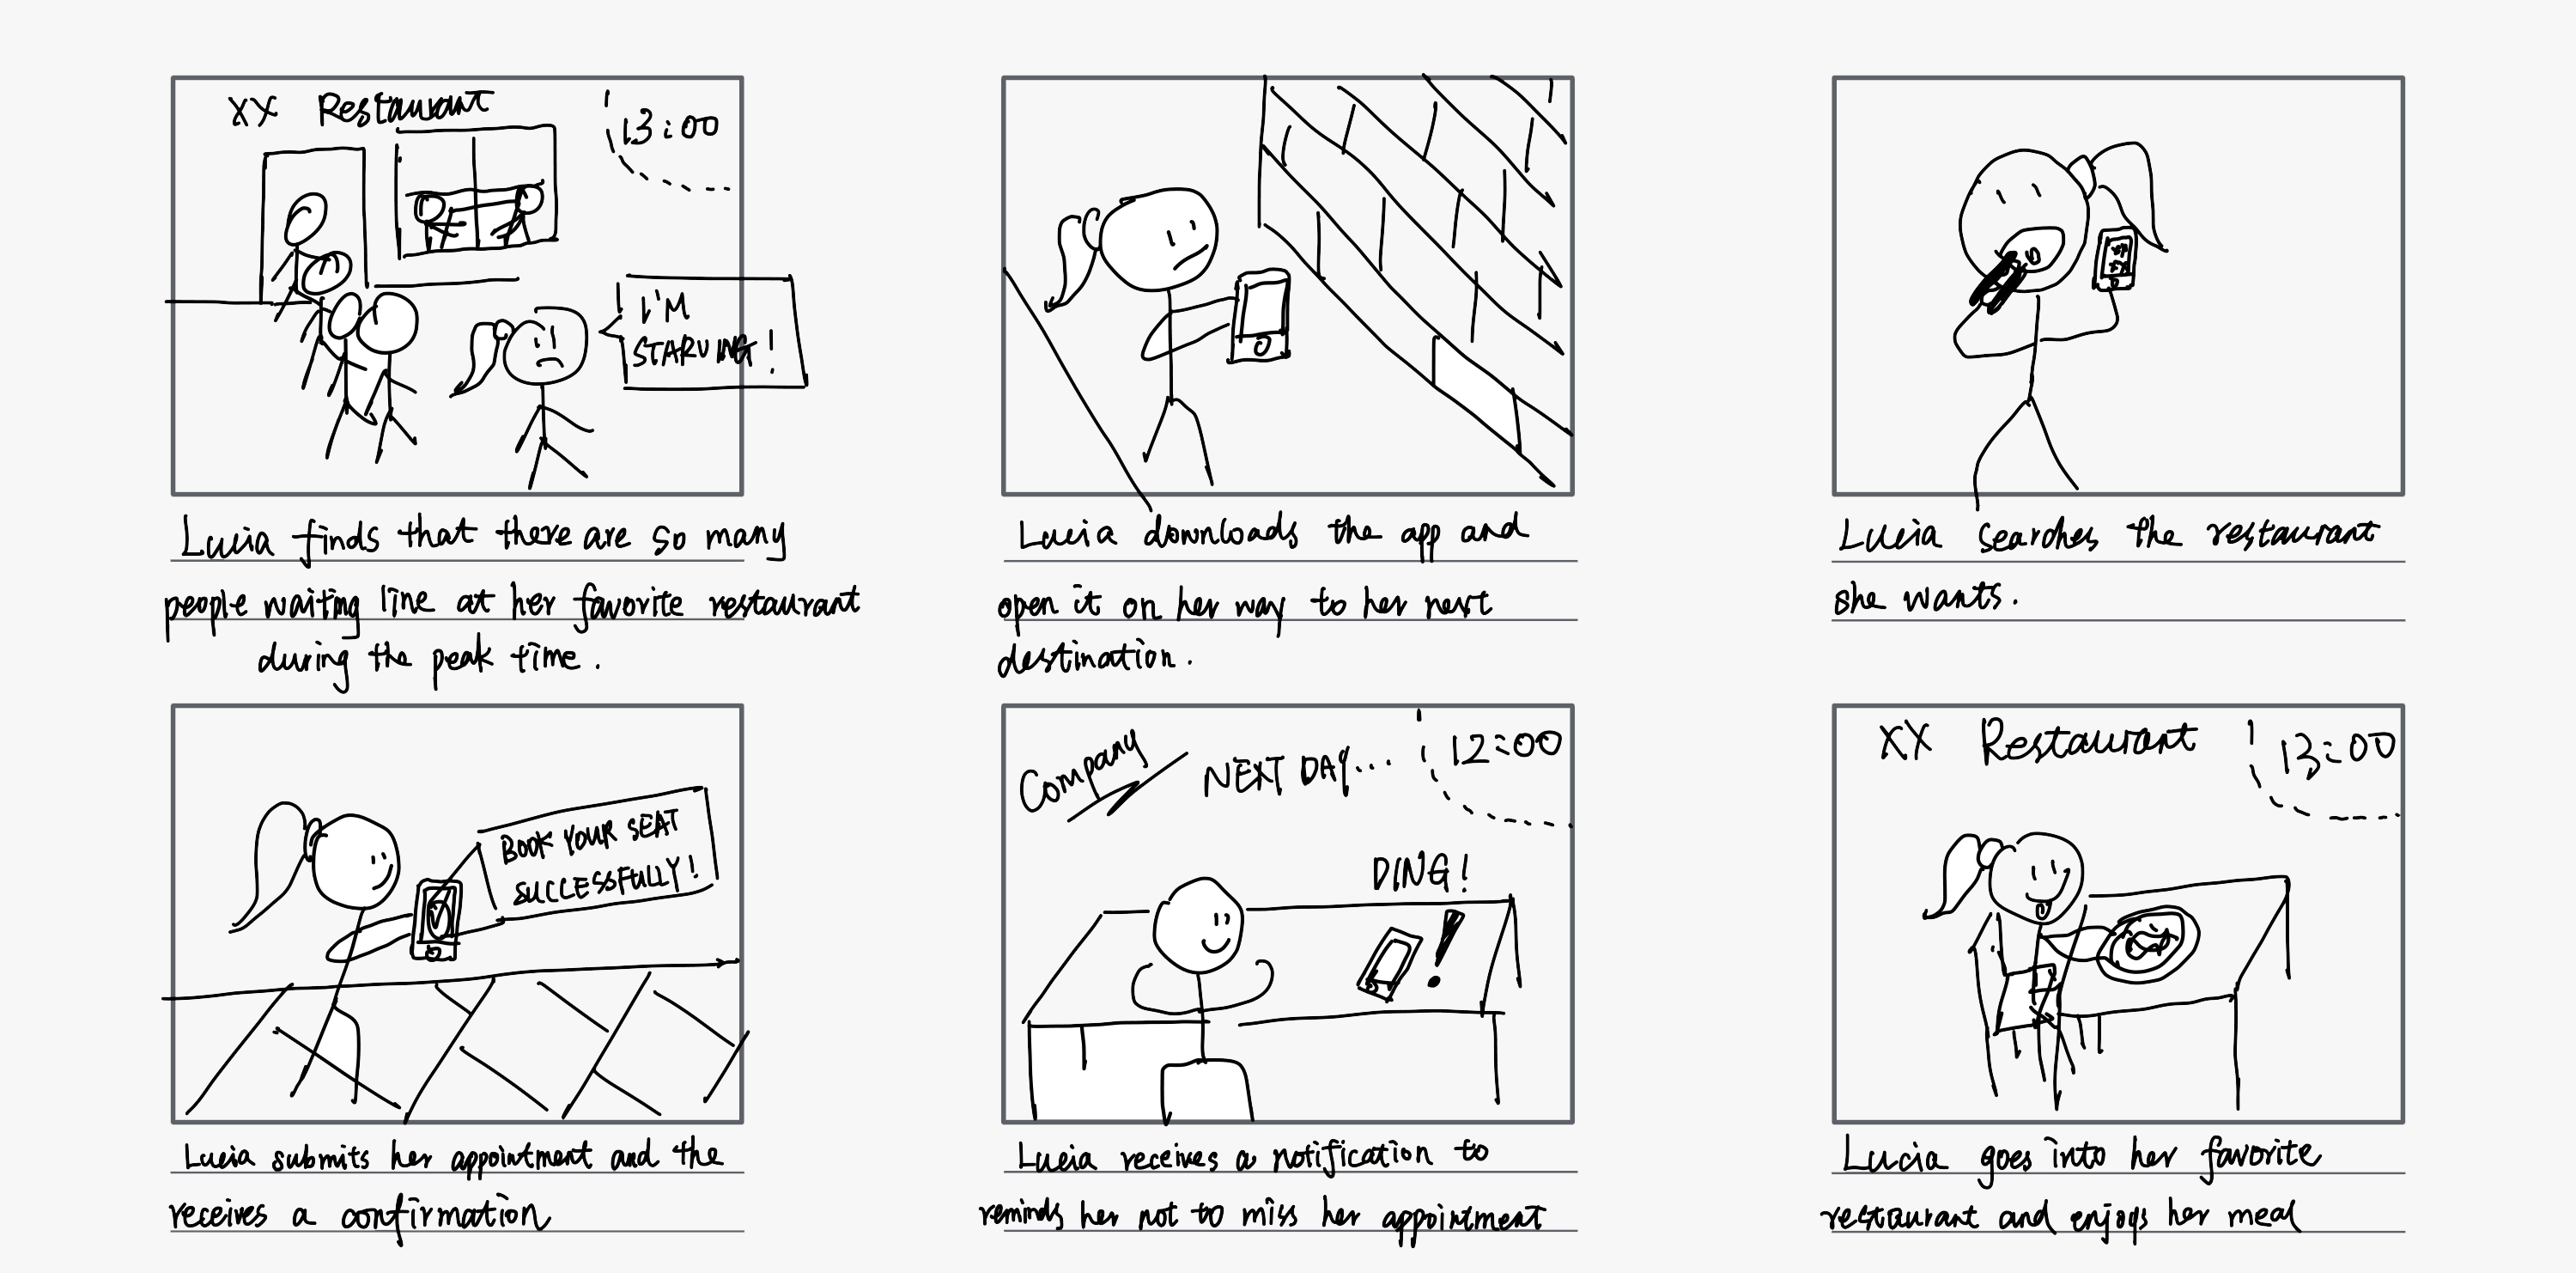 XX Restaurant
13:00
I'M
STARVING!
Lucia finds that there are so many
people waiting line at her favorite restaurant
during the peak time.
Lucia downloads the app and
open it on her way to her next
destination.
Lucia searches the restaurant
she wants.
BOOK YOUR SEAT
SUCCESSFULLY!
Lucia submits her appointment and the
receives a confirmation
Company
NEXT DAY...
12:00
DING!
Lucia receives a notification to
reminds her not to miss her appointment
XX Restaurant
13:00
Lucia goes into her favorite
restaurant and enjoys her meal